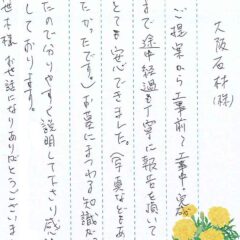 大阪石材(株)
ご提案から工事前、工事中、完
まで途中経過も丁寧に報告を頂いて
とても安心できました。(写真なども
たかったです。)お墓にまつわる知識が
たので分りやすく説明して下さり感
しております。
様 お世話になりありがとうございま